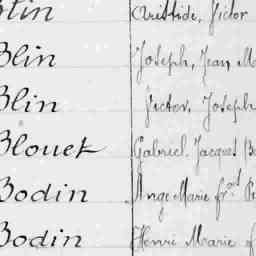 Blin Aristide, Victor
Blin Joseph, Jean Ma
Blin Victor, Joseph
Blouet Gabriel, Jacques Ba
Bodin Ange Marie frçois
Bodin Henri Marie f